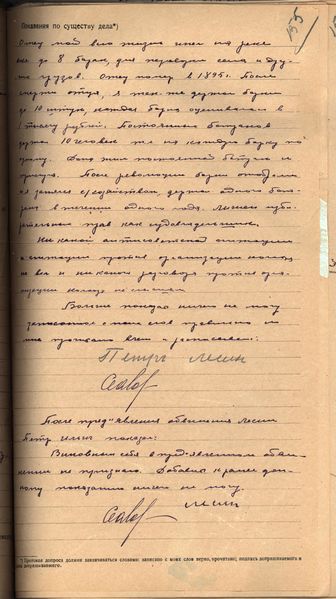 155
Показания по существу дела*)
Отец мой всю жизнь имел на реке
до 8 барж, для перевозки сена и дру-
гих грузов. Отец помер в 1895 г. После
смерти отца, я, так же держал баржи
до 10 штук, каждая баржа оценивалась в
1 тысячу рублей. Постоянных батраков
держал 10 человек т.е. на каждую баржу по
одному. После революции баржи отобрали
я занялся с/хозяйством, держал одного бат-
рака в течении одного года. Лишен изби-
рательных прав как судовладельщик.
Ни какой антисоветской агитации
и агитации против организации колхоза
не вел и ни каких разговоров против орга-
низации колхоза не слышал.
Больше показать ничего не могу
записано с моих слов правильно и
мне прочитано в чем и расписываюсь:
Петр Лесин
После пред'явления обвинения Лесин
Петр показал:
Виновным себя в пред'явленном обви-
нении не признаю. Добавить к ранее дан-
ному показанию ничего не могу.
Лесин
*) Протокол допроса должен заканчиваться словами: записано с моих слов верно, прочитано; подпись допрашиваемого и
допрашивающего.